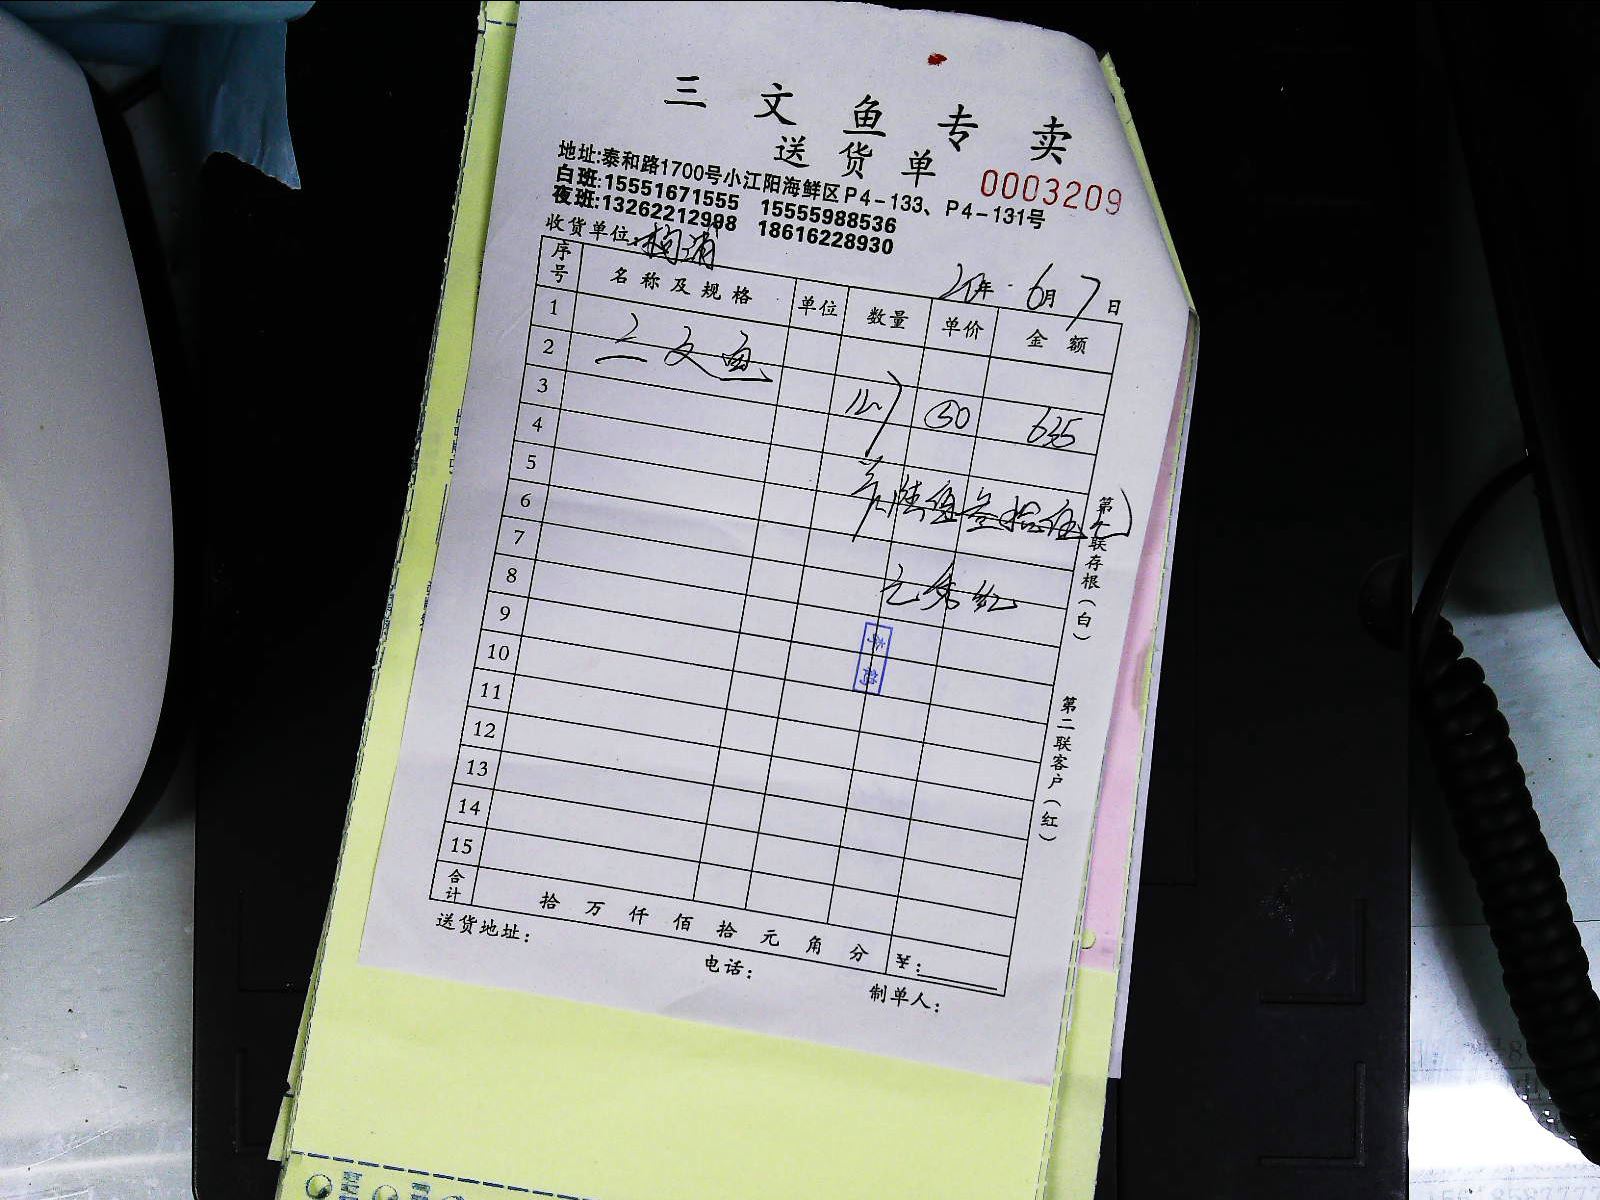 三文鱼专卖
送货单
0003209
地址:泰和路1700号小江阳海鲜区P4-133、P4-131号
白班:15551671555 15555988536
夜班:13262212998 18616228930
收货单位:
21年 6月 7日
序号 名称及规格 单位 数量 单价 金额
1
2 三文鱼 12.7 50 635
3
4
5 陆佰叁拾伍元
6
7
8
9
10
11
12
13
14
15
合计 拾 万 仟 佰 拾 元 角 分 ¥:
送货地址:
电话:
制单人:
第一联存根(白)
第二联客户(红)